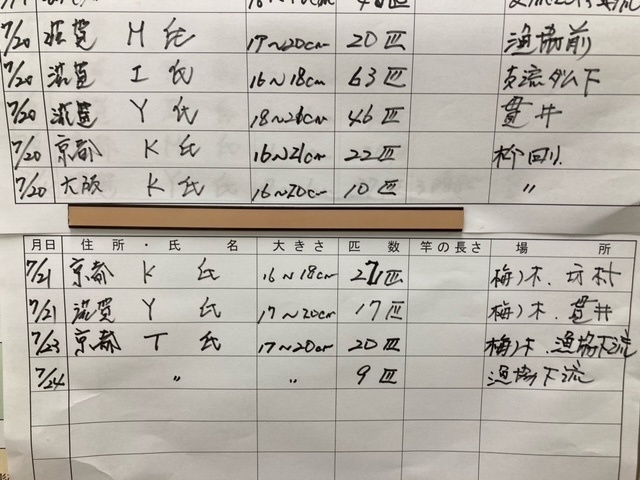 7/20 滋賀 M 氏 17~20cm 20匹 漁協前
7/20 滋賀 I 氏 16~18cm 63匹 支流ダム下
7/20 滋賀 Y 氏 46匹 貫井
7/20 京都 K 氏 16~21cm 22匹
7/20 大阪 K 氏 16~20cm 10匹 〃
月日 住所・氏名 大きさ 匹数 竿の長さ 場所
7/21 京都 K 氏 16~18cm 27匹 梅ノ木、坊村
7/21 滋賀 Y 氏 17~20cm 17匹 梅ノ木、貫井
7/23 京都 T 氏 17~20cm 20匹 梅ノ木、漁協下流
7/24 〃 〃 9匹 漁協下流